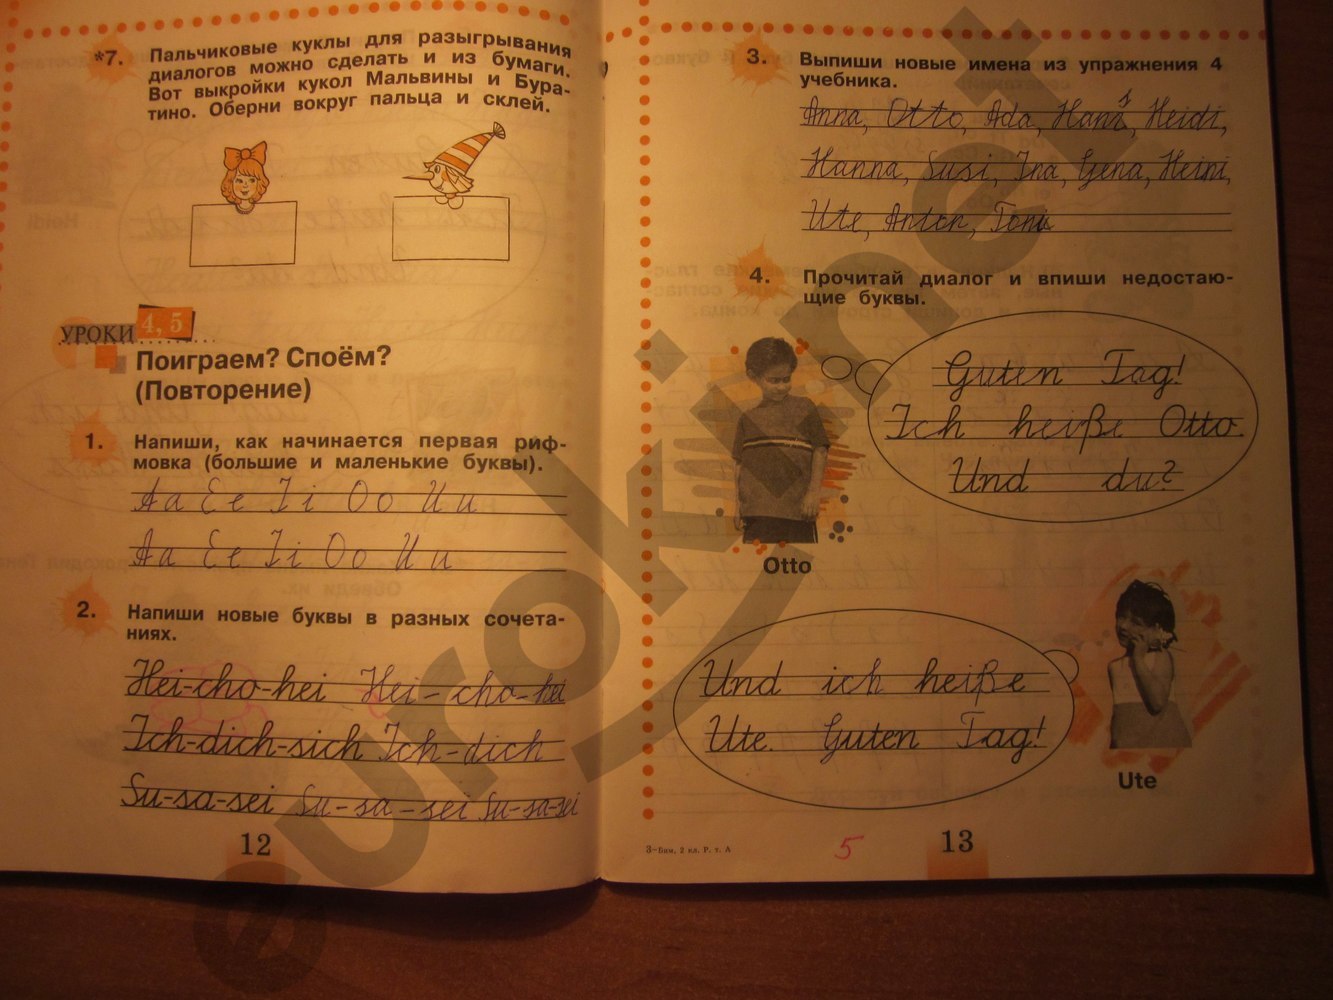 *7. Пальчиковые куклы для разыгрывания
диалогов можно сделать и из бумаги.
Вот выкройки кукол Мальвины и Бура-
тино. Оберни вокруг пальца и склей.
УРОКИ 4, 5
Поиграем? Споём?
(Повторение)
1. Напиши, как начинается первая риф-
мовка (большие и маленькие буквы).
Aa Ee Ii Oo Uu
Aa Ee Ii Oo Uu
2. Напиши новые буквы в разных сочета-
ниях.
Hei-cho-hei Hei-cho-hei
Ich-dich-sich Ich-dich
Su-sa-sei Su-sa-sei Su-sa-sei
12
3. Выпиши новые имена из упражнения 4
учебника.
Anna, Otto, Ada, Hans, Heidi,
Hanna, Susi, Ina, Gena, Heini,
Ute, Anton,
4. Прочитай диалог и впиши недостаю-
щие буквы.
Guten Tag!
Ich heiße Otto.
Und du?
Otto
Und ich heiße
Ute. Guten Tag!
Ute
3–Бим, 2 кл. Р. т. А
5
13
eurokinet